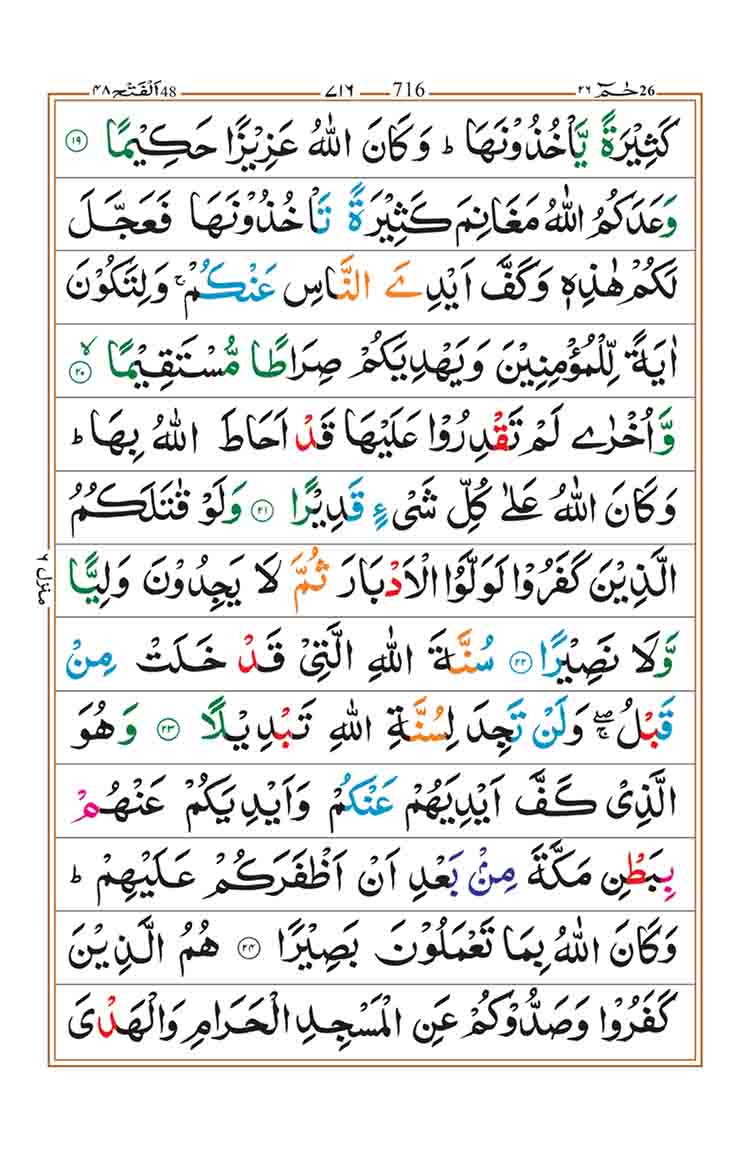 26 حٰمٓ ٢٦ 716 ٧١٦ 48 اَلْفَتْح ٤٨
كَثِيْرَةً يَّاْخُذُوْنَهَا ؕ وَكَانَ اللّٰهُ عَزِيْزًا حَكِيْمًا ۝۱۹
وَعَدَكُمُ اللّٰهُ مَغَانِمَ كَثِيْرَةً تَاْخُذُوْنَهَا فَعَجَّلَ
لَكُمْ هٰذِهٖ وَكَفَّ اَيْدِيَ النَّاسِ عَنْكُمْ ۚ وَلِتَكُوْنَ
اٰيَةً لِّلْمُؤْمِنِيْنَ وَيَهْدِيَكُمْ صِرَاطًا مُّسْتَقِيْمًا ۝۲۰ ۙ
وَّاُخْرٰى لَمْ تَقْدِرُوْا عَلَيْهَا قَدْ اَحَاطَ اللّٰهُ بِهَا ؕ
وَكَانَ اللّٰهُ عَلٰى كُلِّ شَیْءٍ قَدِيْرًا ۝۲۱ وَلَوْ قٰتَلَكُمُ
الَّذِيْنَ كَفَرُوْا لَوَلَّوُا الْاَدْبَارَ ثُمَّ لَا يَجِدُوْنَ وَلِيًّا
وَّلَا نَصِيْرًا ۝۲۲ سُنَّةَ اللّٰهِ الَّتِیْ قَدْ خَلَتْ مِنْ
قَبْلُ ۖۚ وَلَنْ تَجِدَ لِسُنَّةِ اللّٰهِ تَبْدِيْلًا ۝۲۳ وَهُوَ
الَّذِیْ كَفَّ اَيْدِيَهُمْ عَنْكُمْ وَاَيْدِيَكُمْ عَنْهُمْ
بِبَطْنِ مَكَّةَ مِنْۢ بَعْدِ اَنْ اَظْفَرَكُمْ عَلَيْهِمْ ؕ
وَكَانَ اللّٰهُ بِمَا تَعْمَلُوْنَ بَصِيْرًا ۝۲۴ هُمُ الَّذِيْنَ
كَفَرُوْا وَصَدُّوْكُمْ عَنِ الْمَسْجِدِ الْحَرَامِ وَالْهَدْیَ
منزل ٦